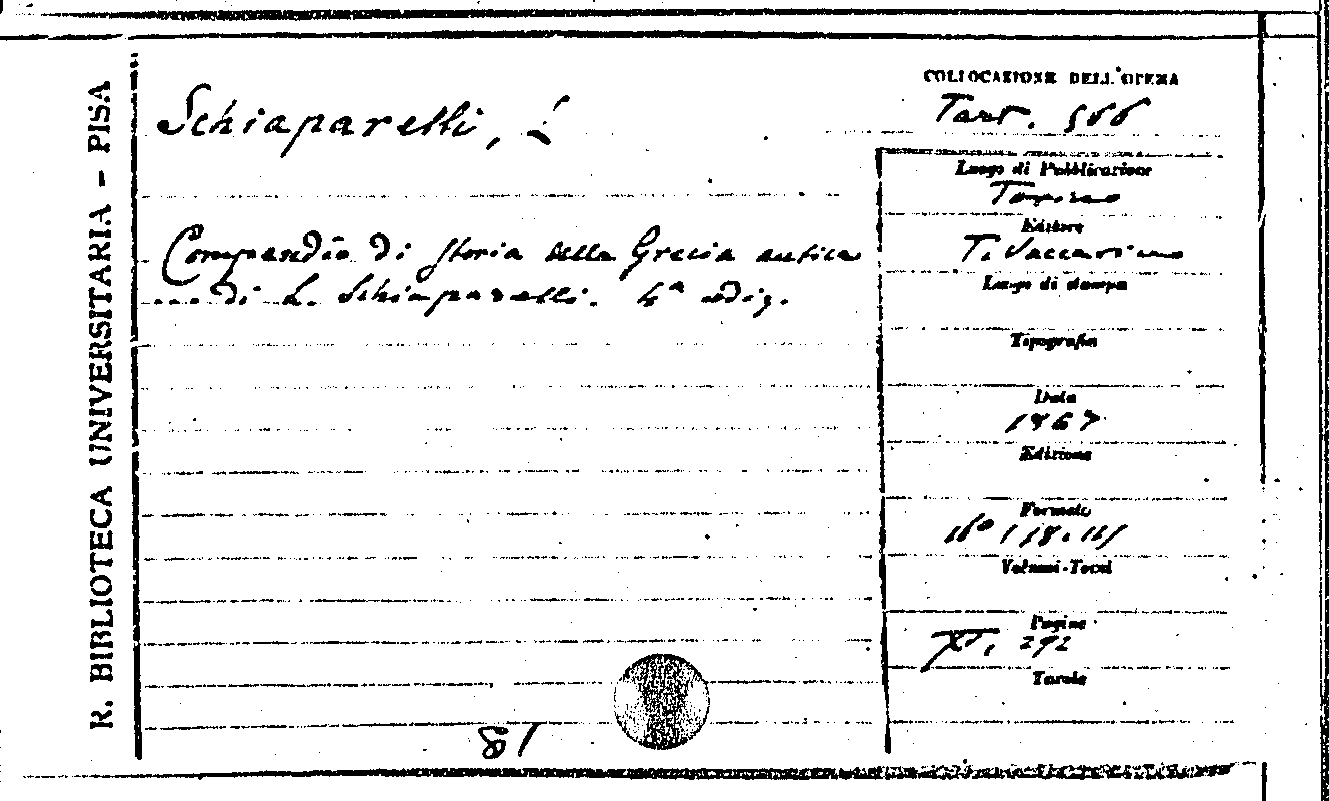 R. BIBLIOTECA UNIVERSITARIA - PISA
Schiaparelli, L
Compendio di storia della Grecia antica
... di L. Schiaparelli. 4ª ediz.
81
COLLOCAZIONE DELL'OPERA
Tart. 566
Luogo di Pubblicazione
Torino
Editore
T. Vaccarino
Luogo di stampa
Tipografia
Data
1867
Edizione
Formato
16°
Volumi-Tomi
Pagine
XI, 292
Tavole